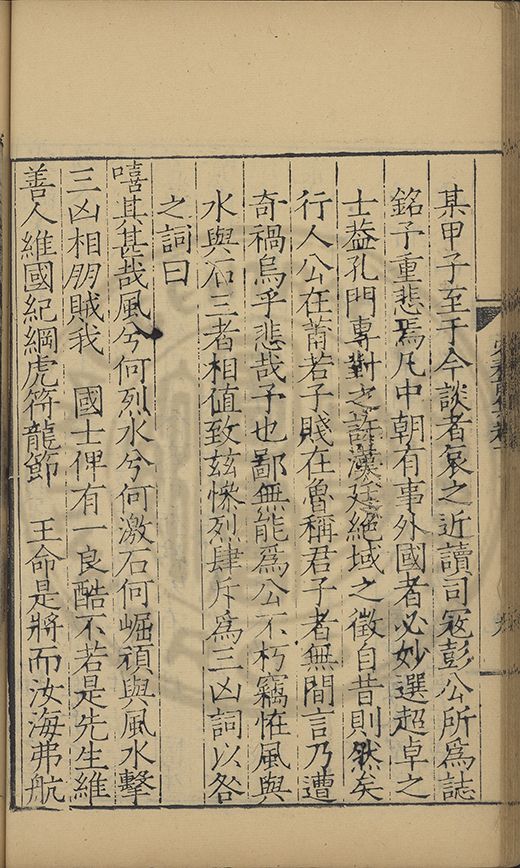 某甲子至于今談者哀之近讀司寇彭公所為誌
銘予重悲焉凡中朝有事外國者必妙選超卓之
士葢孔門專對之許漢廷絕域之徵自昔則然矣
行人公在莆若子賤在魯稱君子者無間言乃遭
奇禍烏乎悲哉予也鄙無能為公不朽竊恠風與
水與石三者相值致玆慘烈肆斥為三凶詞以咎
之詞曰
嘻其甚哉風兮何烈水兮何激石何崛頑與風水擊
三凶相朋賊我 國士俾有一良酷不若是先生維
善人維國紀綱虎符龍節 王命是將而汝海弗航